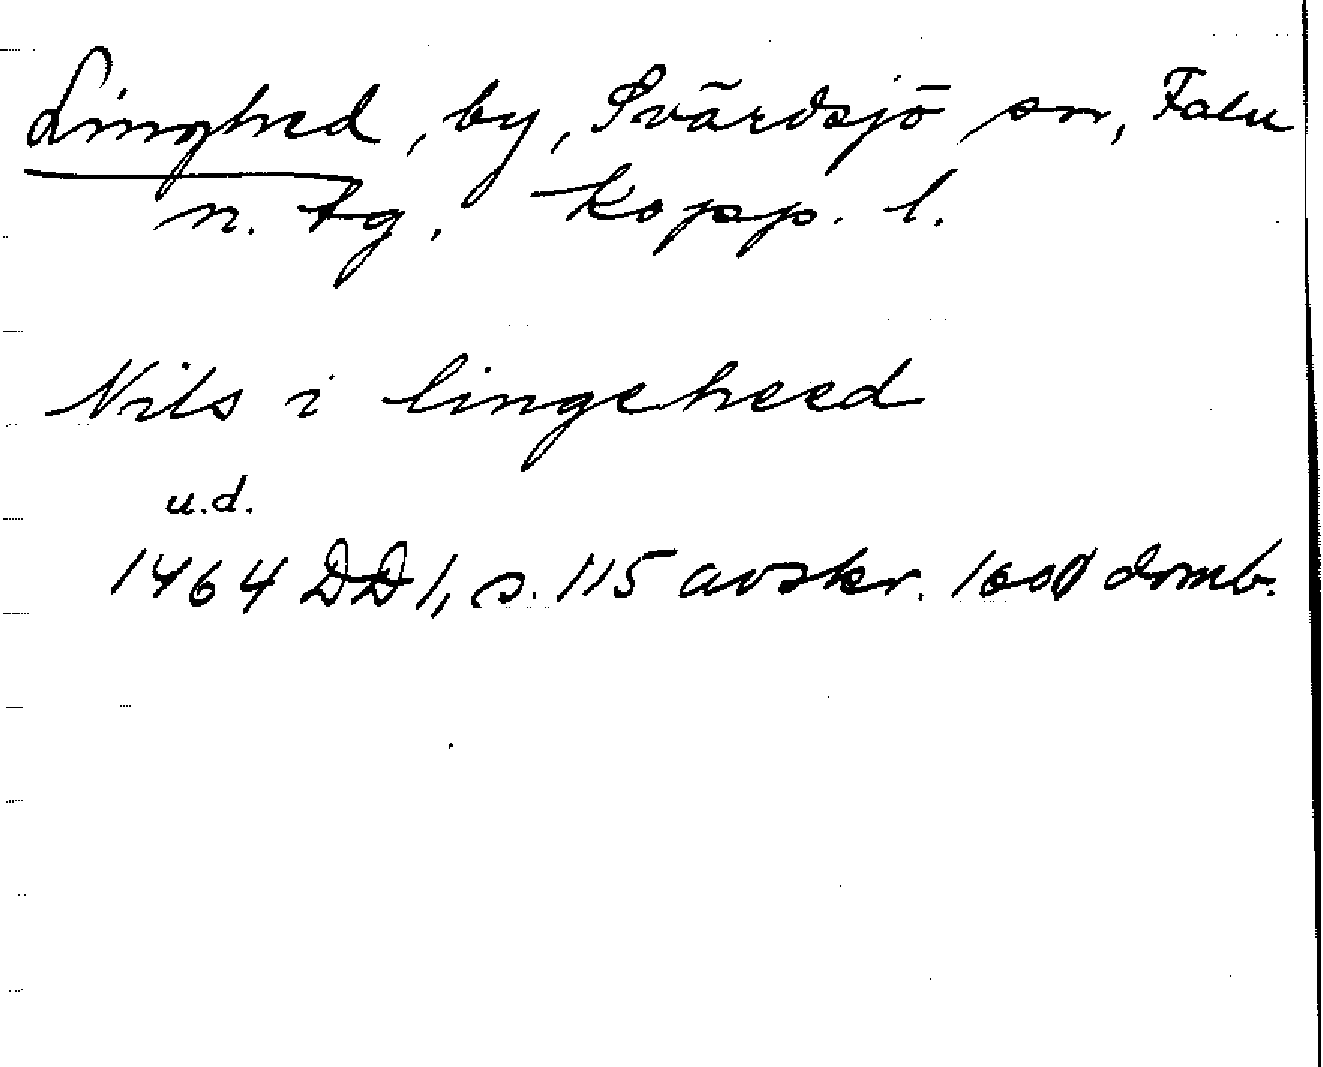 Linghed, by, Svärdsjö sn, Falu
n. tg. Kopp. l.
Nils i lingeheed
u.d.
1464 DD 1, s. 115 avskr. 1600 domb.